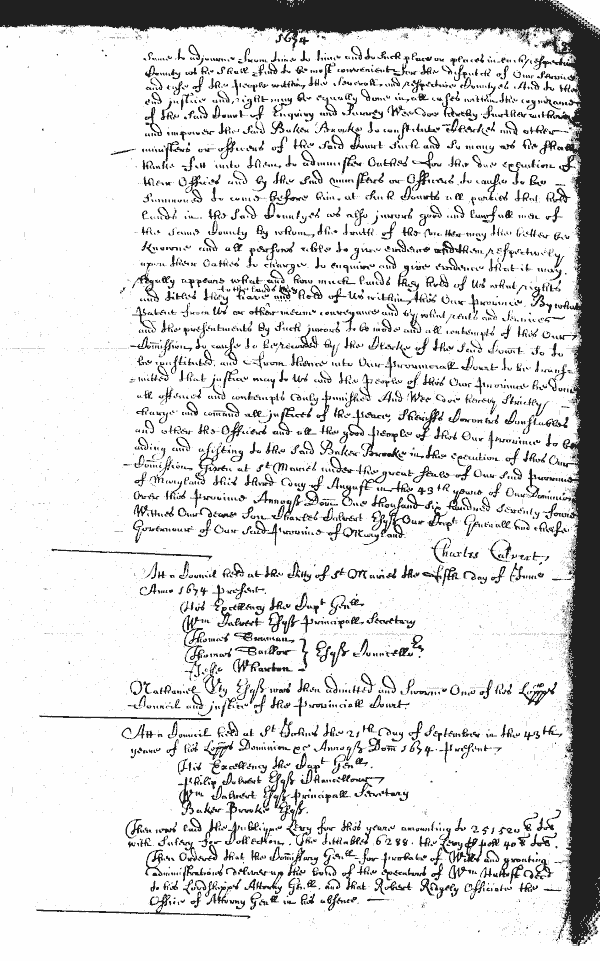 1674
same to adjourne from time to time and to such place or places in each respective
County as he shall find to be most convenient for the dispatch of Our Service
and ease of the People within the severall and respective Countyes And to the
end justice and right may be equally done in all cases within the cognizance
of the said Court of Enquiry and Survey Wee doe hereby further authorize
and impower the said Baker Brooke to constitute Clerkes and other
ministers or officers of the said Court such and so many as he shall
thinke fitt unto them to administer Oathes for the due execution of
their Offices and by the said ministers or Officers to cause to be
Summoned to come before him at such Courts all parties that hold
lands in the said Countyes as also jurors good and lawfull men of
the same County by whom the truth of the matter may the better be
Knowne and all persons able to give evidence and them respectively
upon their Oathes to charge to enquire and give evidence that it may
legally appeare what and how much lands they hold of Us what rights
and titles they have to the lands they hold of Us within this Our Province By what
Patent from Us or other meane conveyance and by what rents and services
and the presentments by such jurors to be made and all contempts of this Our
Commission to cause to be recorded by the Clerke of the said Court so to
be constituted and from thence into Our Provinciall Court to be transf
mitted that justice may to Us and the People of this Our Province be done
all offences and contempts duly punished And Wee doe hereby strictly
charge and comand all justices of the peace, Sheriffs Coronors Constables
and other the Officers and all the good people of this Our Province to be
aiding and assisting to the said Baker Brooke in the execution of this Our
Commission Given at St Maries under the great Seale of Our said Province
of Maryland this third day of August in the 43th yeare of Our Dominion
over this Province Annoqß Dom̃ One thousand six hundred seventy foure
Witnes Our deare Son Charles Calvert Esqß Our Capt Generall and cheife
Governour of Our said Province of Maryland
Charles Calvert
Att a Councill held at the Citty of St Maries the Fifth day of June
Anno 1674 Present
His Excellency the Capt Genll
Wm Calvert Esqß Principall Secretary
Thomas
Thomas Taillor } Esqß Councellrs
Jesse Wharton
Nathaniel Uty Esqß was then admitted and Sworne One of his Lopps
Councill and justice of the Provinciall Court
Att a Councill held at St Johns the 21th day of September in the 43th
yeare of his Lopps Dominion &c Annoqß Dom̃ 1674. Present
His Excellency the Capt Genll.
Philip Calvert Esqß Chancellour
Wm Calvert Esqß Principall Secretary
Baker Brooke Esqß
Then was laid the Publique Levy for this yeare amounting to 251520 £ Tob
with Salary for Collection. The tithables 6288. the Levy £ poll 40 £ Tob.
Then Ordered that the Comissary Genll for Probate of Wills and granting
administrations deliver up the bond of the executors of Wm decd
to his Lordshipps Attorny Genll. and that Robert Ridgely Officiate the
Office of Attorny Genll in his absence.